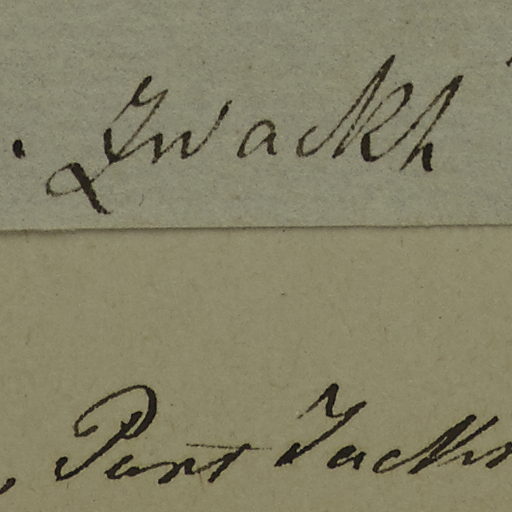 . Zwackh
, Port Jacks